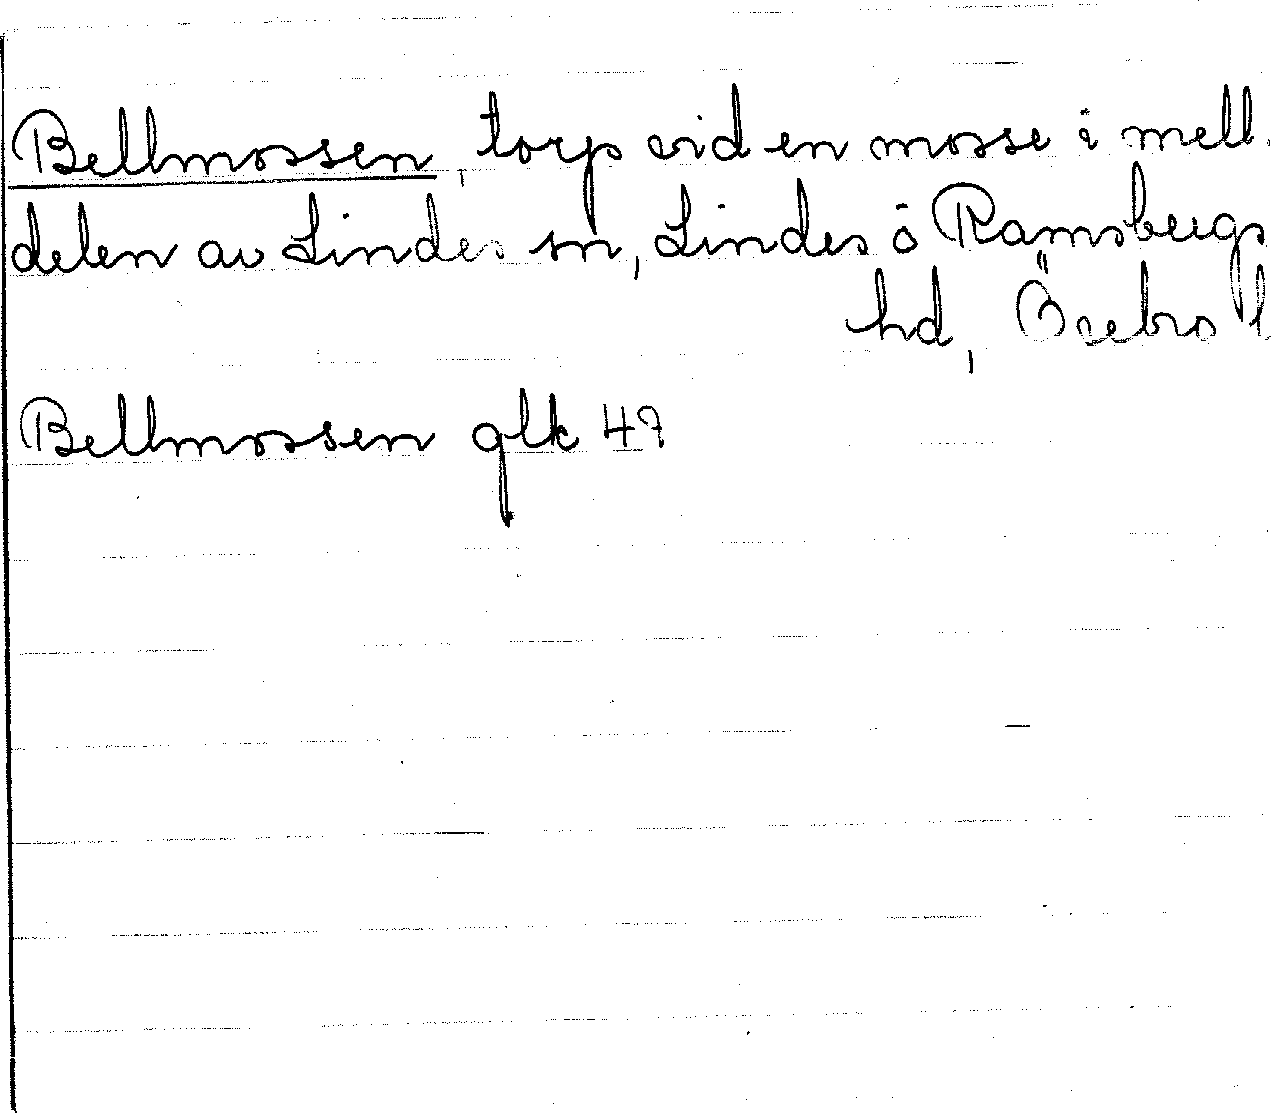 Bellmossen, torp vid en mosse i mell.
delen av Lindes sn, Lindes o Ramsbergs
hd, Örebro l
Bellmossen glk 47